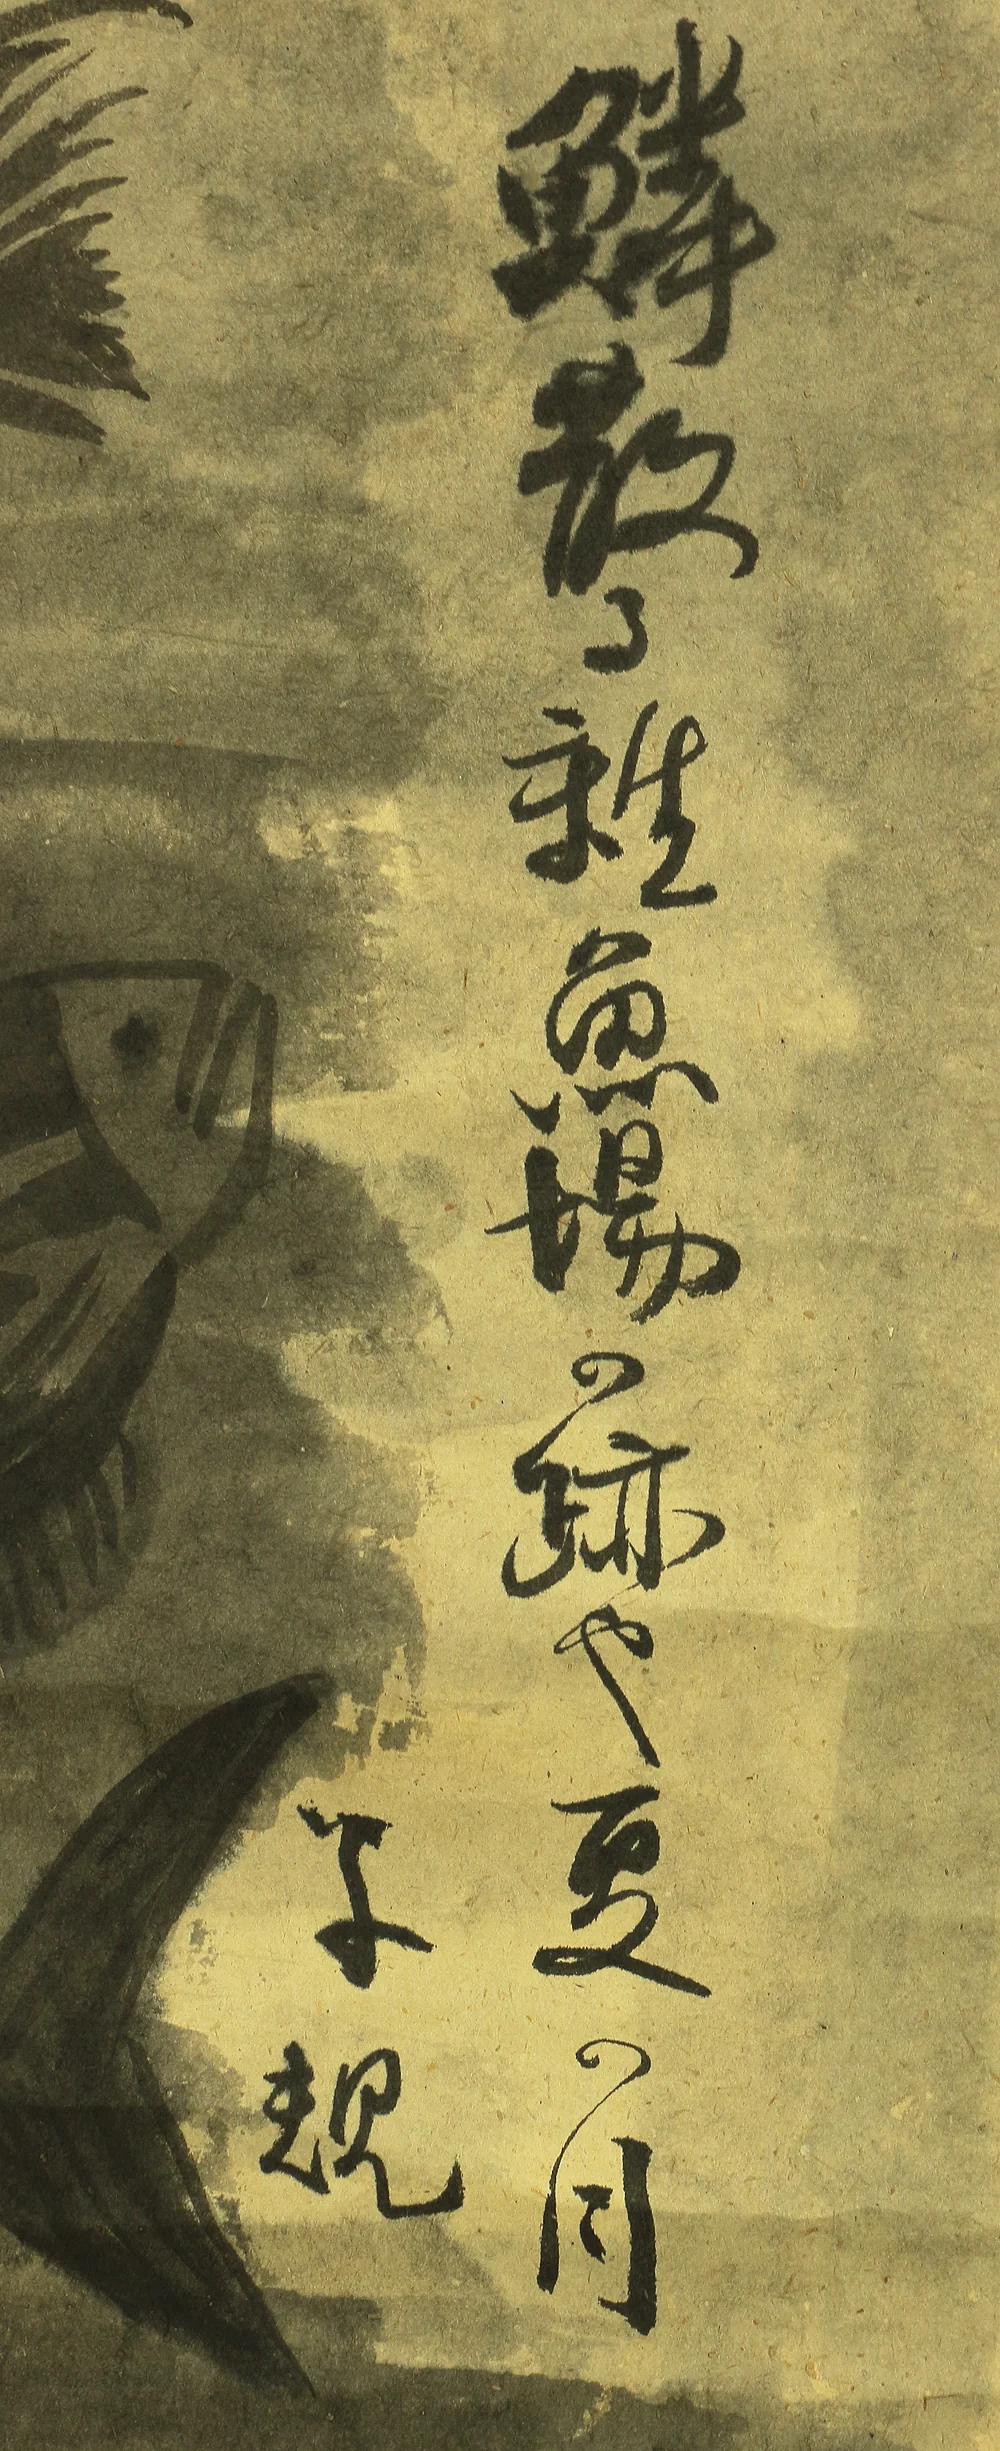 鱗散る雑魚場の跡や夏の月
子規